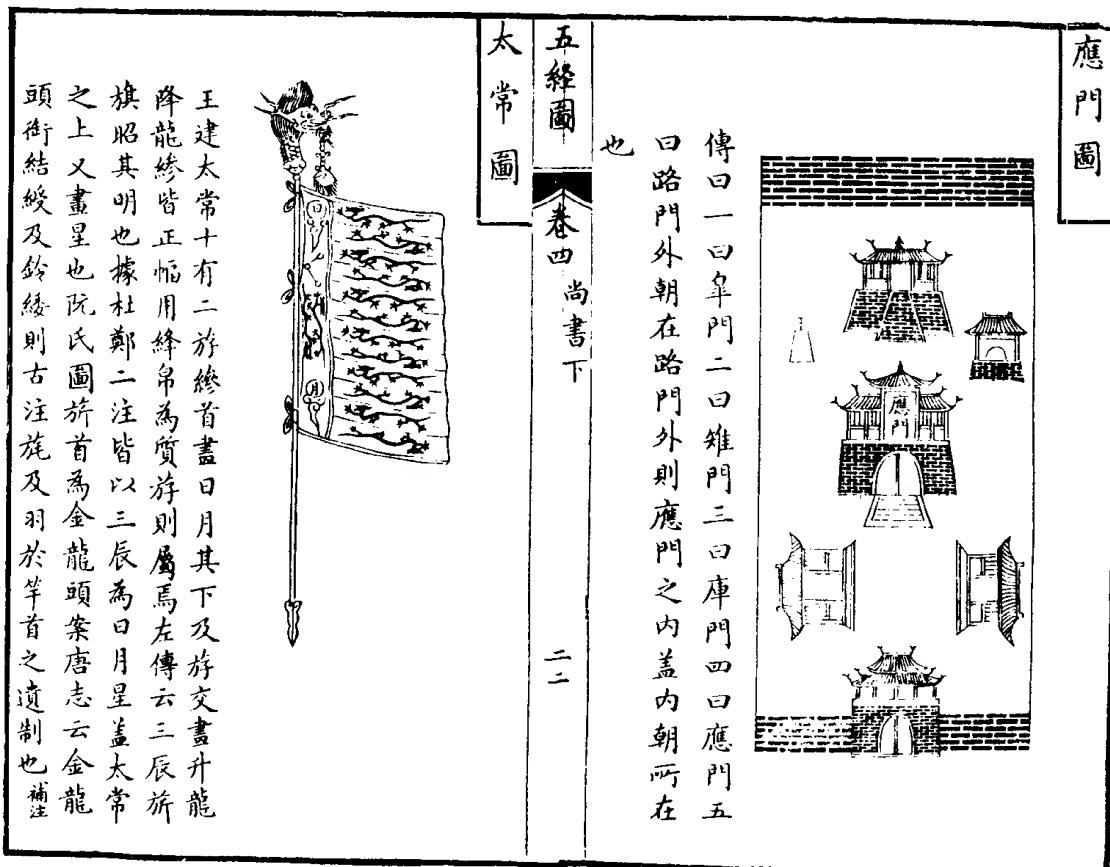 應門圖
應門
傳曰一曰皐門二曰雉門三曰庫門四曰應門五
曰路門外朝在路門外則應門之内盖内朝所在
也
五經圖
卷四
尚書下
二二
太常圖
日
月
王建太常十有二斿縿首畫日月其下及斿交畫升龍
降龍縿皆正幅用絳帛為質斿則屬焉左傳云三辰旂
旗昭其明也據杜鄭二注皆以三辰為日月星盖太常
之上又畫星也阮氏圖旂首為金龍頭案唐志云金龍
頭銜結綬及鈴緌則古注旄及羽於竿首之遺制也 補注